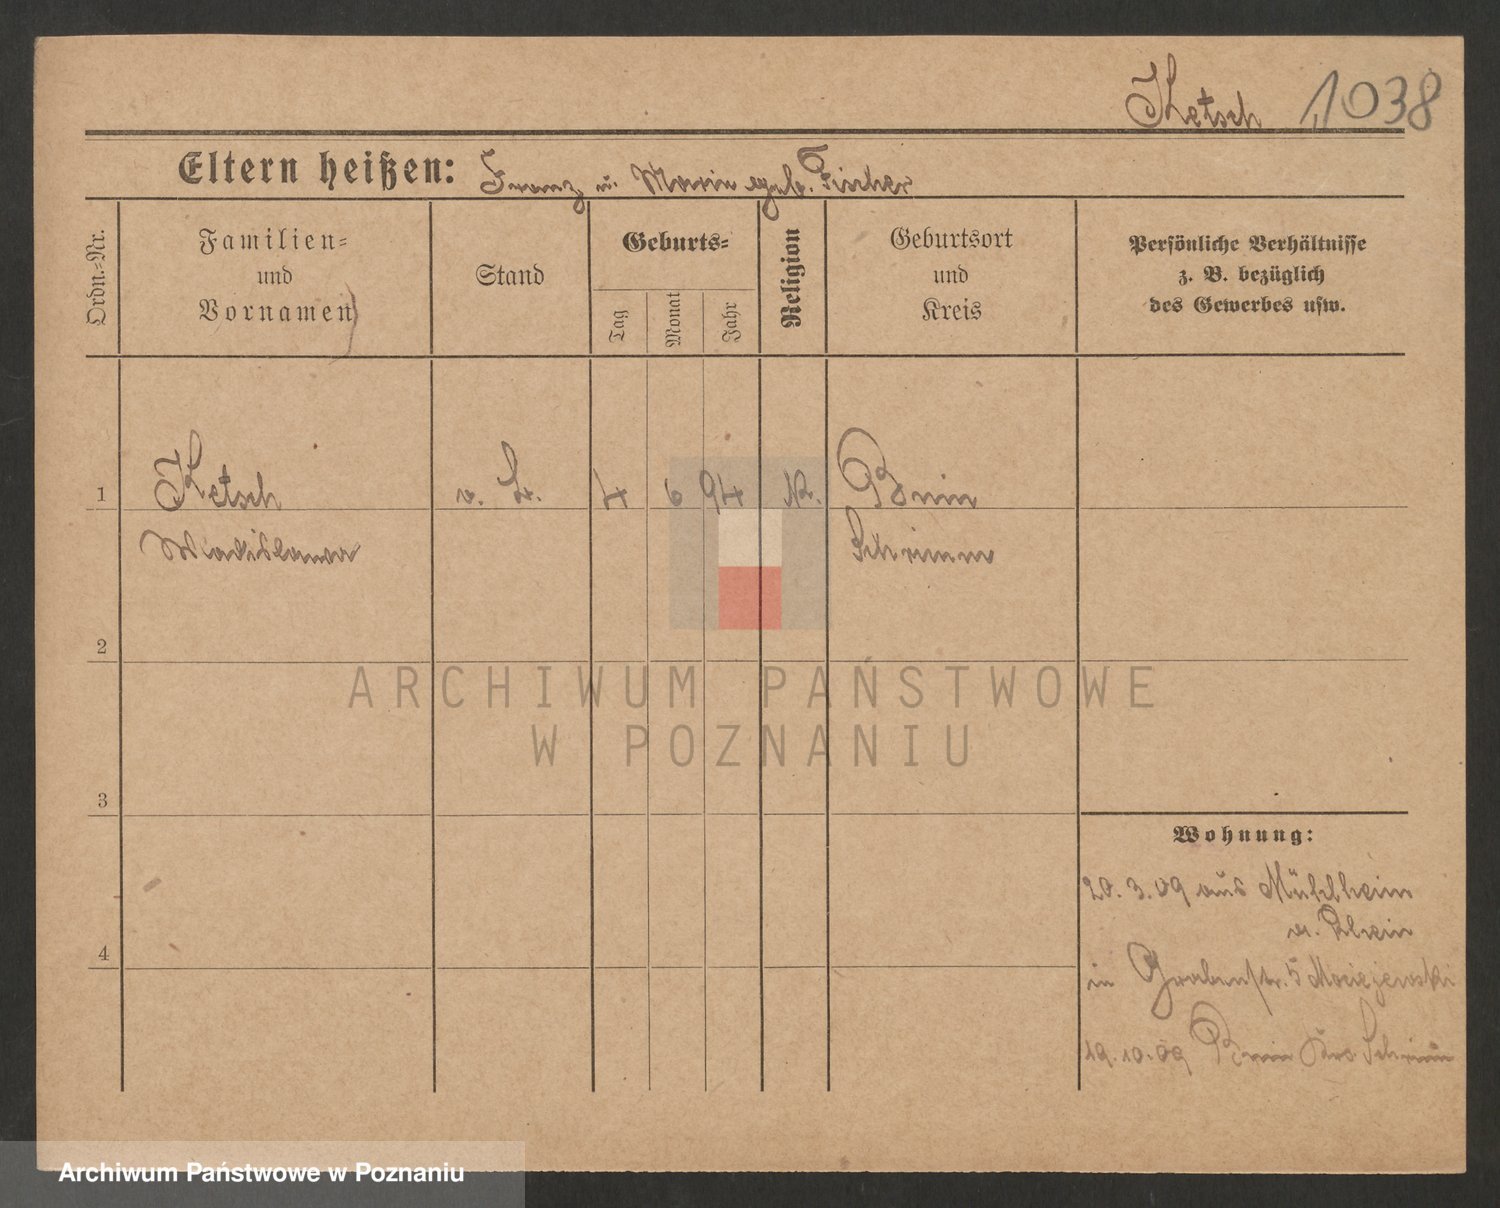 Ketsch 1038
Eltern heißen: Franz u. Maria geb. Fischer
Ordn.-Nr.
Familien-
und
Vornamen
Stand
Geburts-
Tag
Monat
Jahr
Religion
Geburtsort
und
Kreis
Persönliche Verhältnisse
z. B. bezüglich
des Gewerbes usw.
1 Ketsch 4 6 94 Bnin
Wladislawa Schrimm
2
ARCHIWUM PAŃSTWOWE
W POZNANIU
3
Wohnung:
20.3.09 aus Mühlheim
a. Rhein
4
in Grabenstr. 5 Maciejewski
19.10.09 Bnin Krs. Schrimm
Archiwum Państwowe w Poznaniu